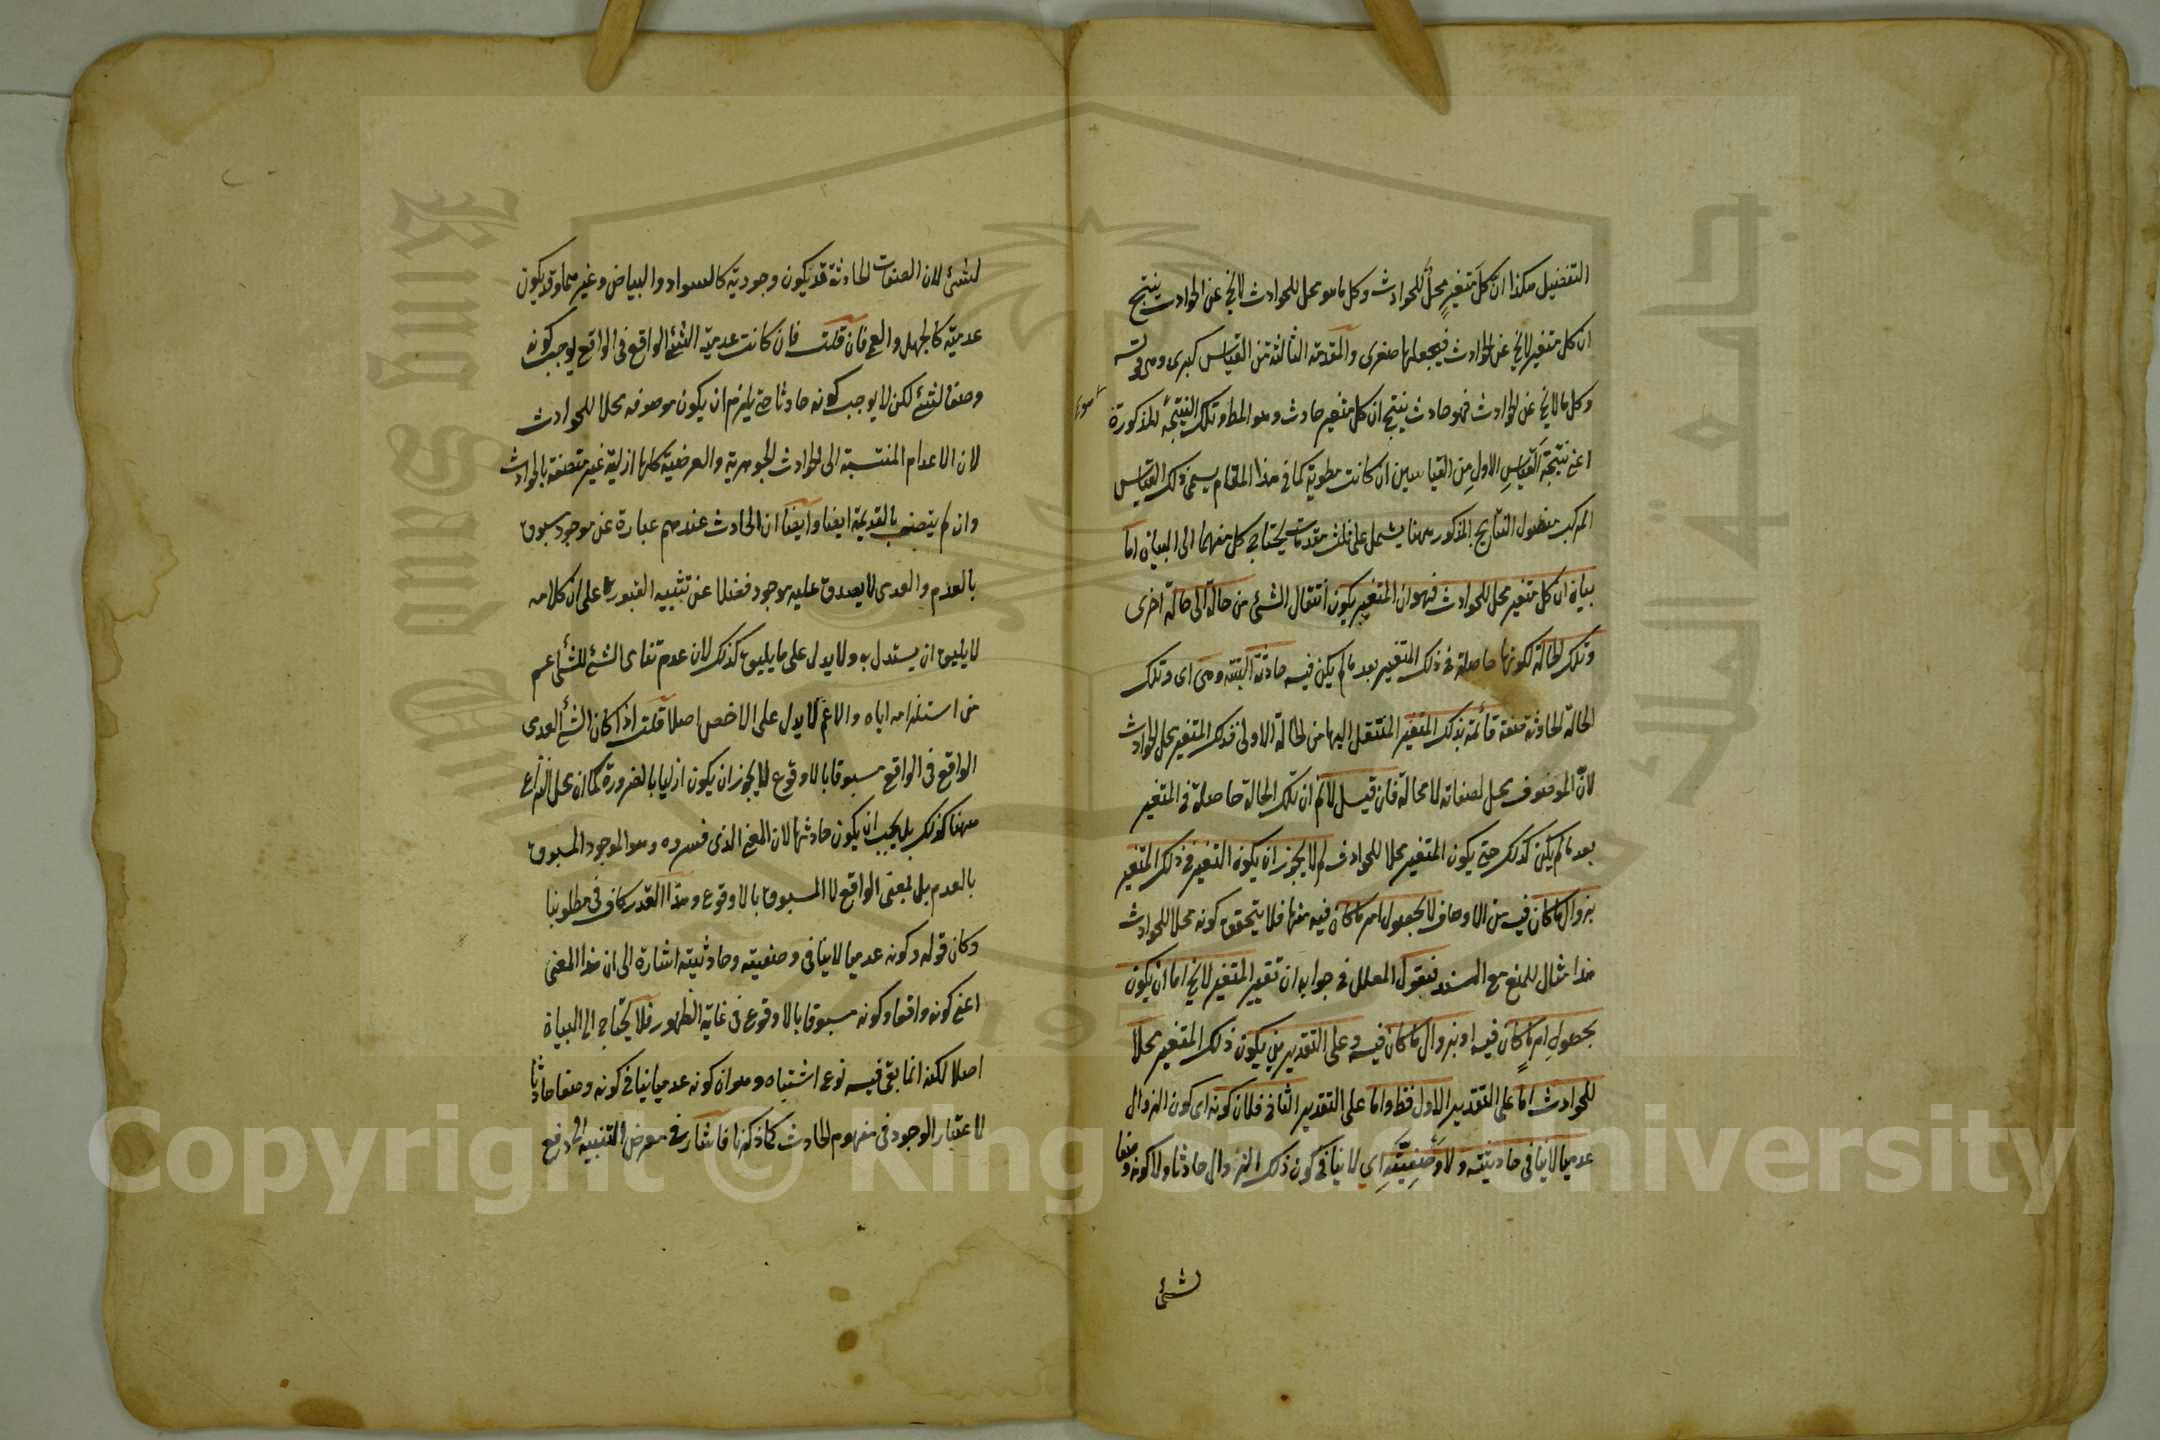 التفصيل هكذا ان كل متغير محل للحوادث وكل ما هو محل للحوادث لا يخ عن الحوادث ينتج
ان كل متغير لا يخ عن الحوادث فيجعلها صغرى والمقدمة الثالثة من القياس كبرى وهى قوله
وكل ما لا يخ عن الحوادث فهو حادث ينتج ان كل متغير حادث وهو المط وتلك النتيجة المذكورة
اعنى نتيجة القياس الاول من القياسين ان كانت مطوية كما فى هذا المقام يسمى ذلك القياس
المركب مفصول النتايج المذكور ههنا يشمل على ثلث مقدمات يحتاج كل منهما الى البيان اما
بيان ان كل متغير محل للحوادث فهو ان المتغير يكون انتقال الشئ من حالة الى حالة اخرى
وتلك الحالة لكونها حاصلة فى ذلك المتغير بعد ما لم يكن فيه حادثة البتة وهى اى وتلك
الحالة الحادثة صفة قائمة بذلك المتغير المنتقل اليها من الحالة الاولى فذلك المتغير محل الحوادث
لان الموصوف محل لصفاته لا محالة فان قيل لا نم ان تلك الحالة حاصلة فى المتغير
بعد ما لم يكن كذلك حتى يكون المتغير محلا للحوادث لم لا يجوز ان يكون التغير فى ذلك المتغير
بزوال ما كان فيه من الاوصاف لا بحصول امر ما كان فيه منها فلا يتحقق كونه محلا للحوادث
هذا مثال للمنع مع السند فيقول المعلل فى جوابه ان تغير المتغير لا يخ اما ان يكون
بحصول امر ما كان فيه او بزوال ما كان فيه وعلى التقديرين يكون ذلك المتغير محلا
للحوادث اما على التقدير الاول فظ واما على التقدير الثانى فلان كونه اى كون الزوال
عدميا لا ينافى حادثيته ولا وصفيته اي لا ينافى كون ذلك الزوال حادثا ولا كونه وصفا
لشئ
لشئ لان الصفات الحادثة قد يكون وجودية كالسواد والبياض وغيرهما وقد يكون
عدمية كالجهل والعمى فان قلت فان كانت عدمية الشئ الواقع فى الواقع يوجب كونه
وصفا لشئ لكن لا يوجب كونه حادثا حتى يلزم ان يكون موصوفه محلا للحوادث
لان الاعدام المنتسبة الى الحوادث الجوهرية والعرضية كلها ازلية غير متصفة بالحوادث
وان لم يتصف بالقديمة ايضا وايضا ان الحادث عندهم عبارة عن موجود مسبوق
بالعدم والعدمى لا يصدق عليه موجود فضلا عن تثبيه القبور على ان كلامه
لا يليق ان يستدل به ولا يدل على ما يليق كذلك لان عدم تنافى الشئ للشئ اعم
من استلزامه اياه والاعم لا يدل على الاخص اصلا قلت اذا كان الشئ العدمى
الواقع فى الواقع مسبوقا بالا وقوع لا يجوز ان يكون ازليا بالضرورة كما ان محل النزاع
ههنا كذلك بل يجب ان يكون حادثا لا بالمعنى الذى فسروه وهو الموجود المسبوق
بالعدم بل بمعنى الواقع المسبوق بالا وقوع وهذا القدر كاف فى مطلوبنا
وكان قوله وكونه عدميا لا ينافى وصفيته وحادثيته اشارة الى ان هذا المعنى
اعنى كونه واقعا وكونه مسبوقا بالا وقوع فى غاية الظهور فلا يحتاج الى البيان
اصلا لكنه انما بقى فيه نوع اشتباه وهو ان كونه عدميا ينافى كونه وصفا حادثا
لاعتبار الوجود فى مفهوم الحادث كما ذكرنا فاشار فى معرض التنبيه الى دفع
Copyright © King Saud University
King Saud University
جامعة الملك سعود
1957